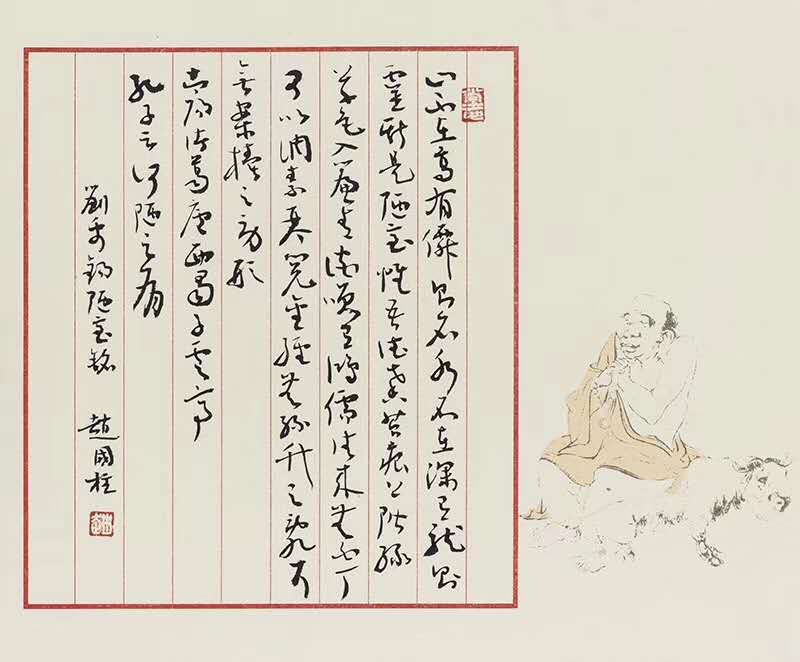 山不在高有僊則名水不在深有龍則
靈斯是陋室惟吾德馨苔痕上階綠
草色入簾青談笑有鴻儒往來無白丁
可以調素琴閱金經無絲竹之亂耳
無案牘之勞形
南陽諸葛廬西蜀子雲亭
孔子云何陋之有
劉禹錫陋室銘 趙國柱